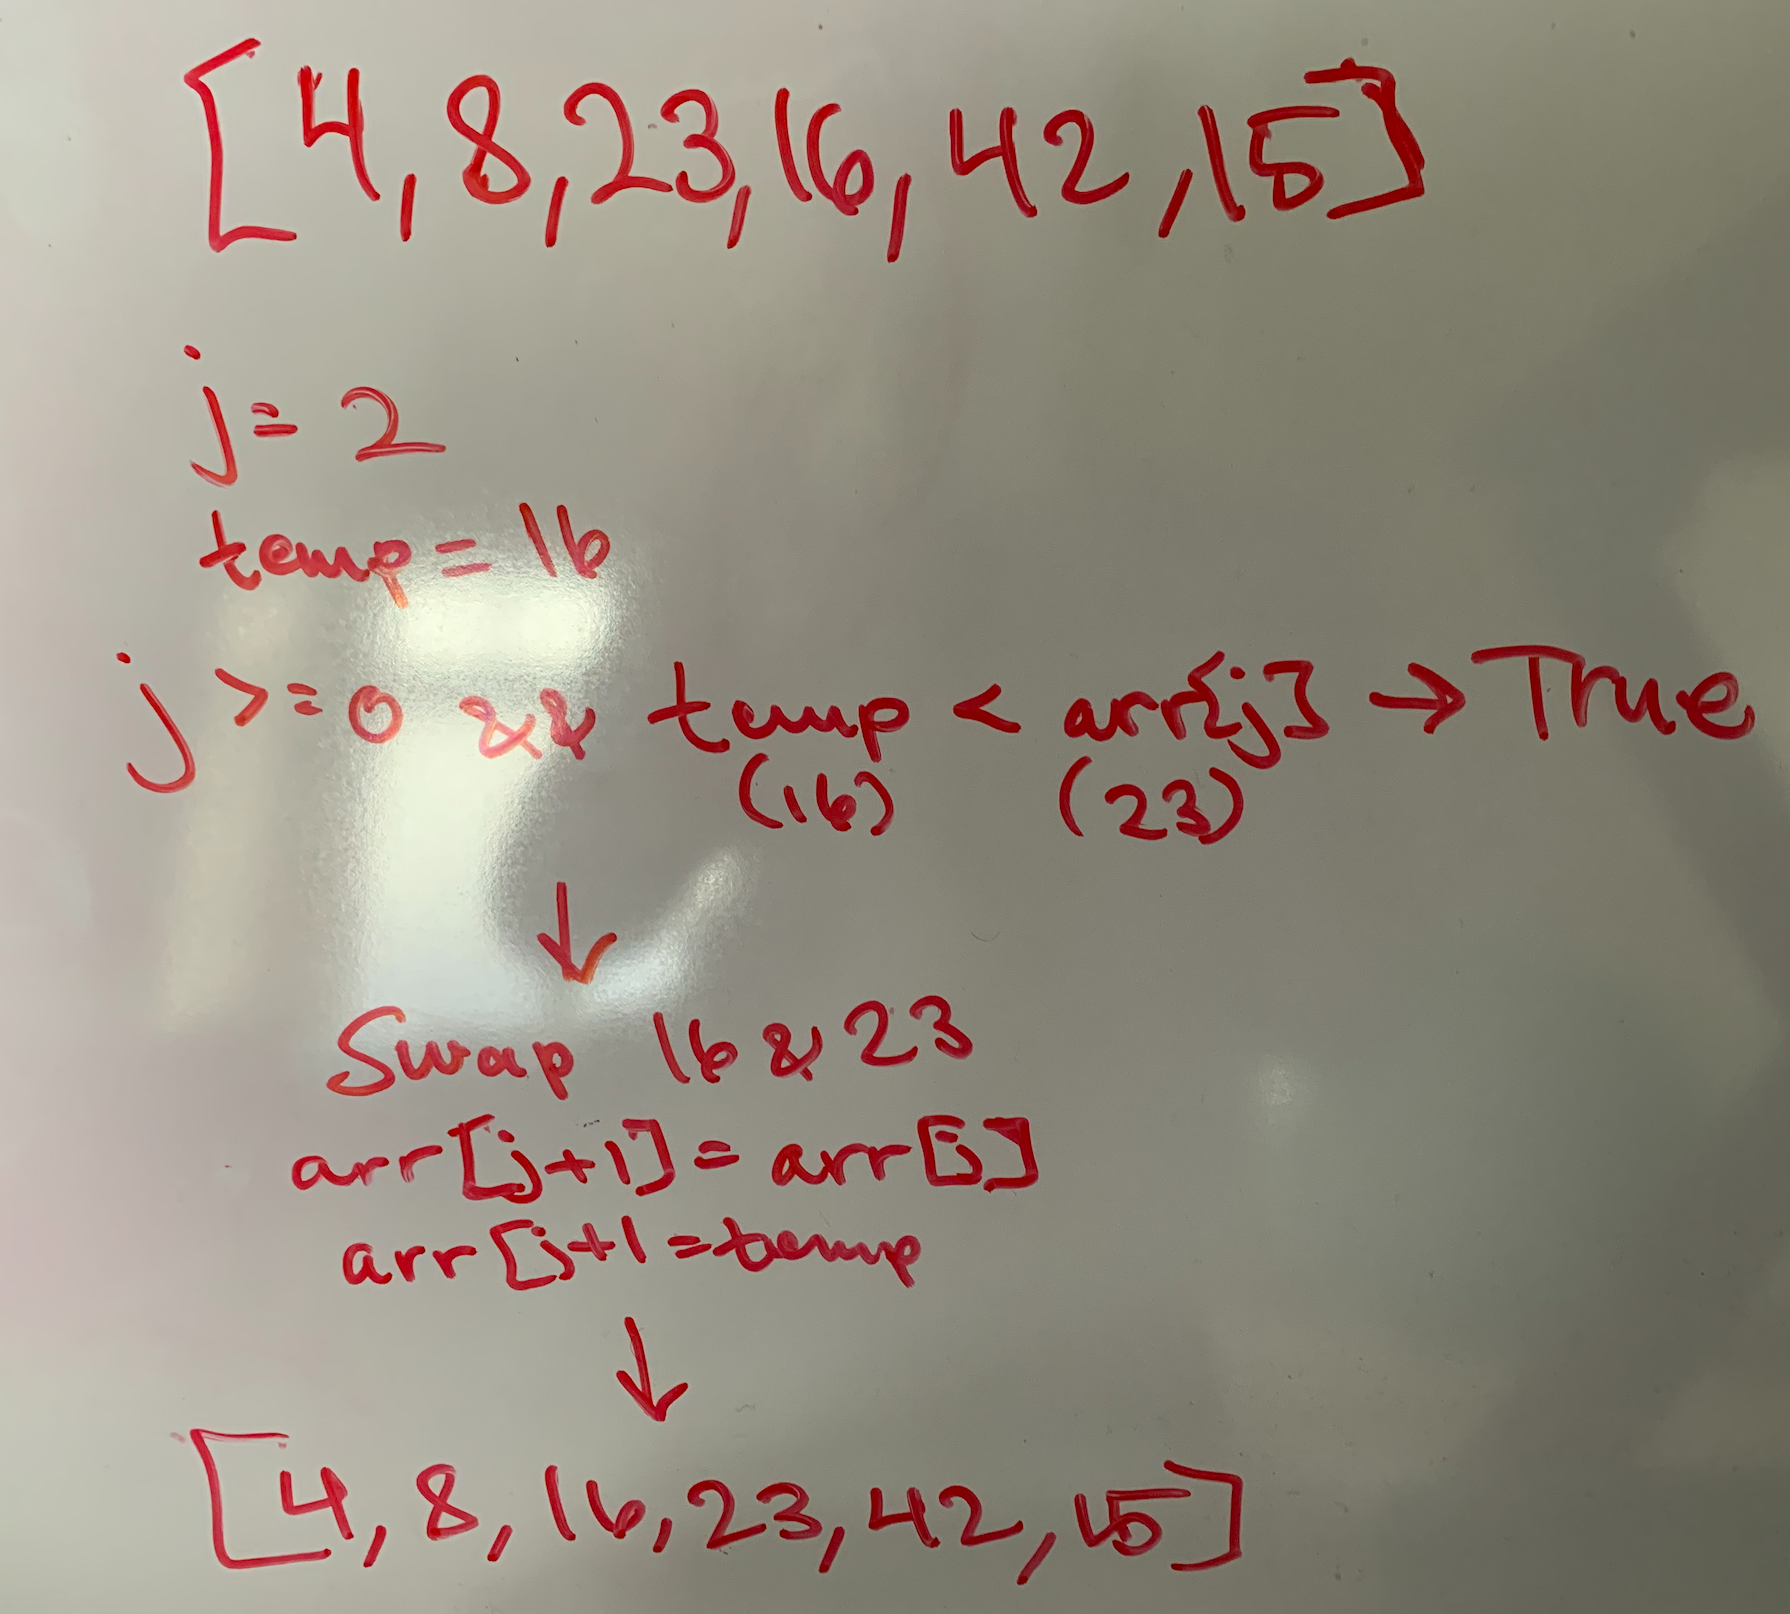 [4, 8, 23, 16, 42, 15]
j = 2
temp = 16
j >= 0 && temp < arr[j] → True
(16) (23)
↓
Swap 16 & 23
arr[j+1] = arr[j]
arr[j+1 = temp
↓
[4, 8, 16, 23, 42, 15]